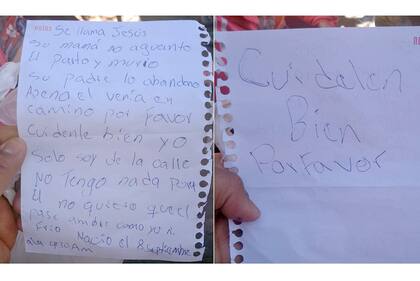 Se llama Jesús
su mamá no aguanto
El parto y murio
Su padre lo abandono
Apena el venia en
camino por favor
cuidenle bien yo
Solo soy de la calle
No Tengo nada para
El no quiero que el
pase ambre como yo n
frio Nacio el 8 septiembre
Cuidelen
Bien
Por Favor